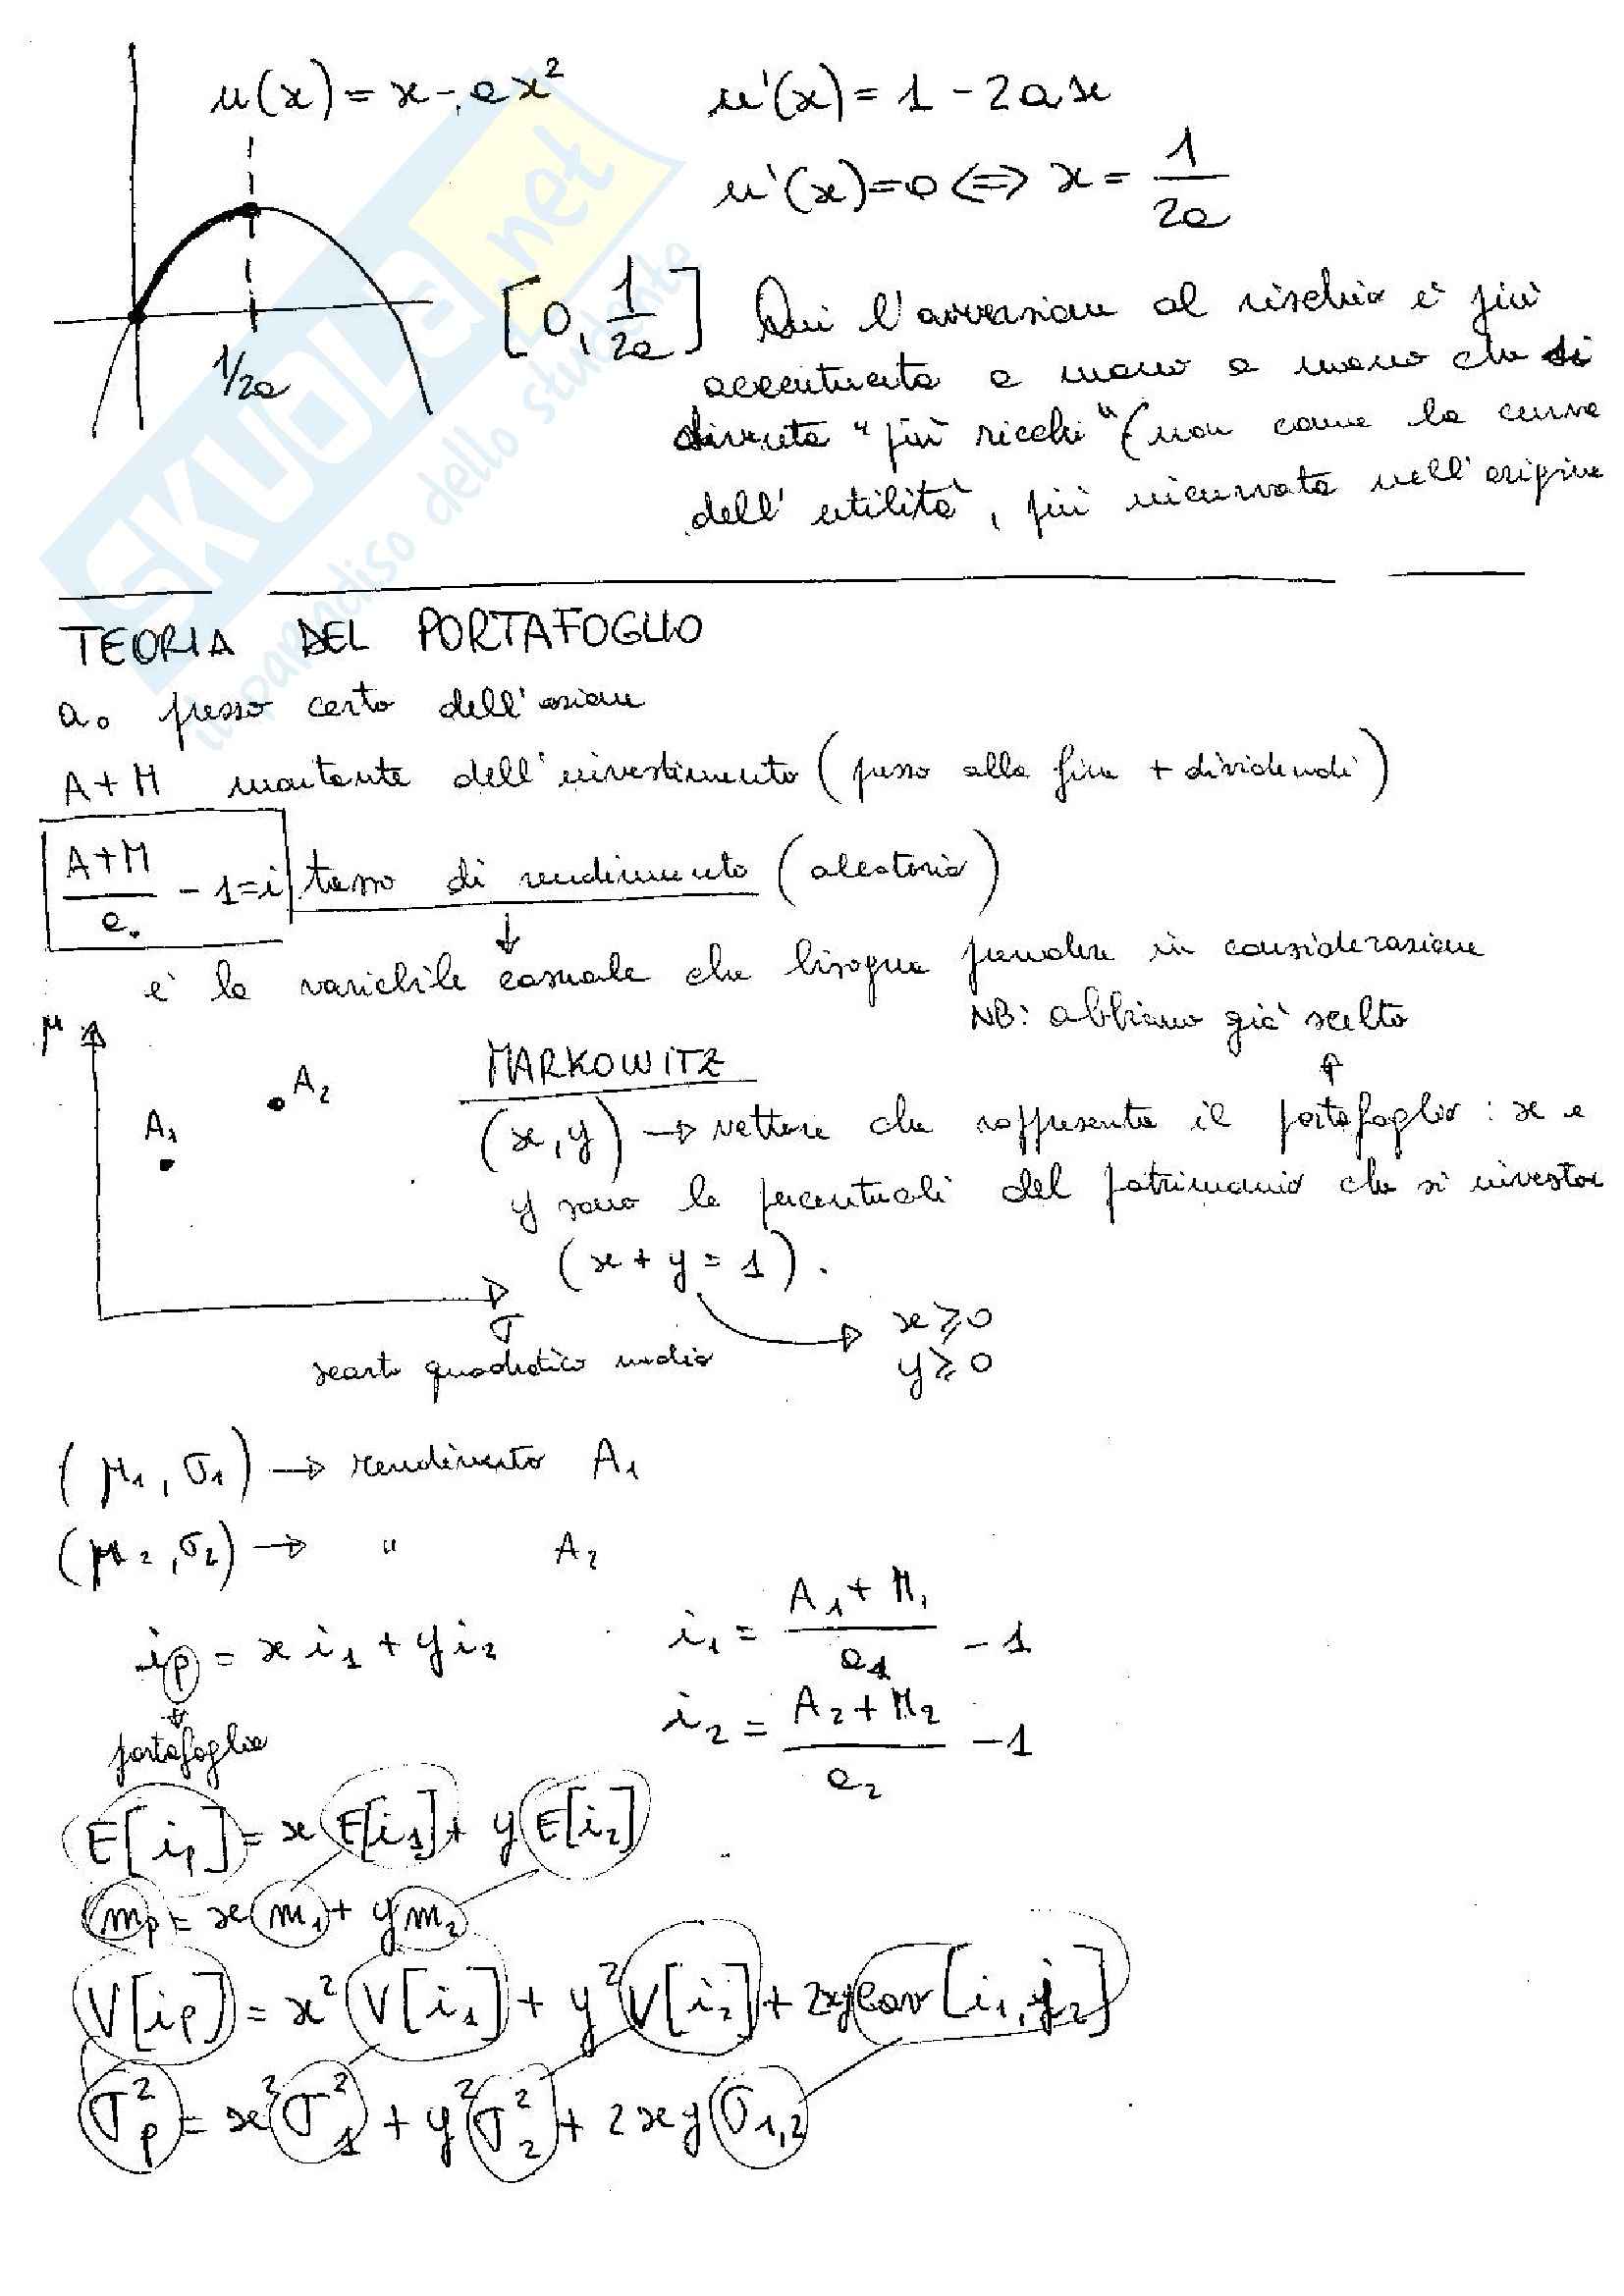 u(x) = x - ax²
u'(x) = 1 - 2ax
u'(x) = 0 <=> x = 1/2a
1/2a
[0, 1/2a] Qui l'avversione al rischio è più
accentuata a mano a mano che si
diventa "più ricchi" (non come la curva
dell'utilità, più incurvata nell'origine
TEORIA DEL PORTAFOGLIO
a₀ prezzo certo dell'azione
A + M montante dell'investimento (prezzo alla fine + dividendi)
(A+M)/a₀ - 1 = i tasso di rendimento (aleatorio)
↓
è la variabile casuale che bisogna prendere in considerazione
NB: abbiamo già scelto
μ
A₂
A₁
MARKOWITZ
(x, y) → vettore che rappresenta il portafoglio: x e
y sono le percentuali del patrimonio che si investon
(x + y = 1).
x ≥ 0
y ≥ 0
σ
scarto quadratico medio
(μ₁, σ₁) → rendimento A₁
(μ₂, σ₂) → " A₂
i_p = x i₁ + y i₂
i₁ = (A₁ + M₁)/a₁ - 1
portafoglio
i₂ = (A₂ + M₂)/a₂ - 1
E[i_p] = x E[i₁] + y E[i₂]
m_p = x m₁ + y m₂
V[i_p] = x² V[i₁] + y² V[i₂] + 2xy Cov[i₁, i₂]
σ²_p = x² σ²₁ + y² σ²₂ + 2xy σ₁,₂
SKUOLA.net
il paradiso dello studente